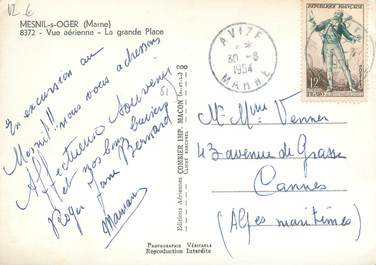 VZ_6
MESNIL-s-OGER (Marne)
8372 - Vue aérienne - La grande Place
En excursion au
Mesnil!!
nous vous adressons
Affectueux Souvenir
et nos bons baisers
Roger Jane Bernard
Maman
51
Editions Aériennes COMBIER IMP. MACON (S.-et-L.)
PHOTOGRAPHIE VÉRITABLE
Reproduction Interdite
AVIZE
30 - 8
1954
MARNE
REPUBLIQUE FRANÇAISE
12F
FIGARO
Mr Mme Venner
43 avenue de Grasse
Cannes
(Alpes maritimes)